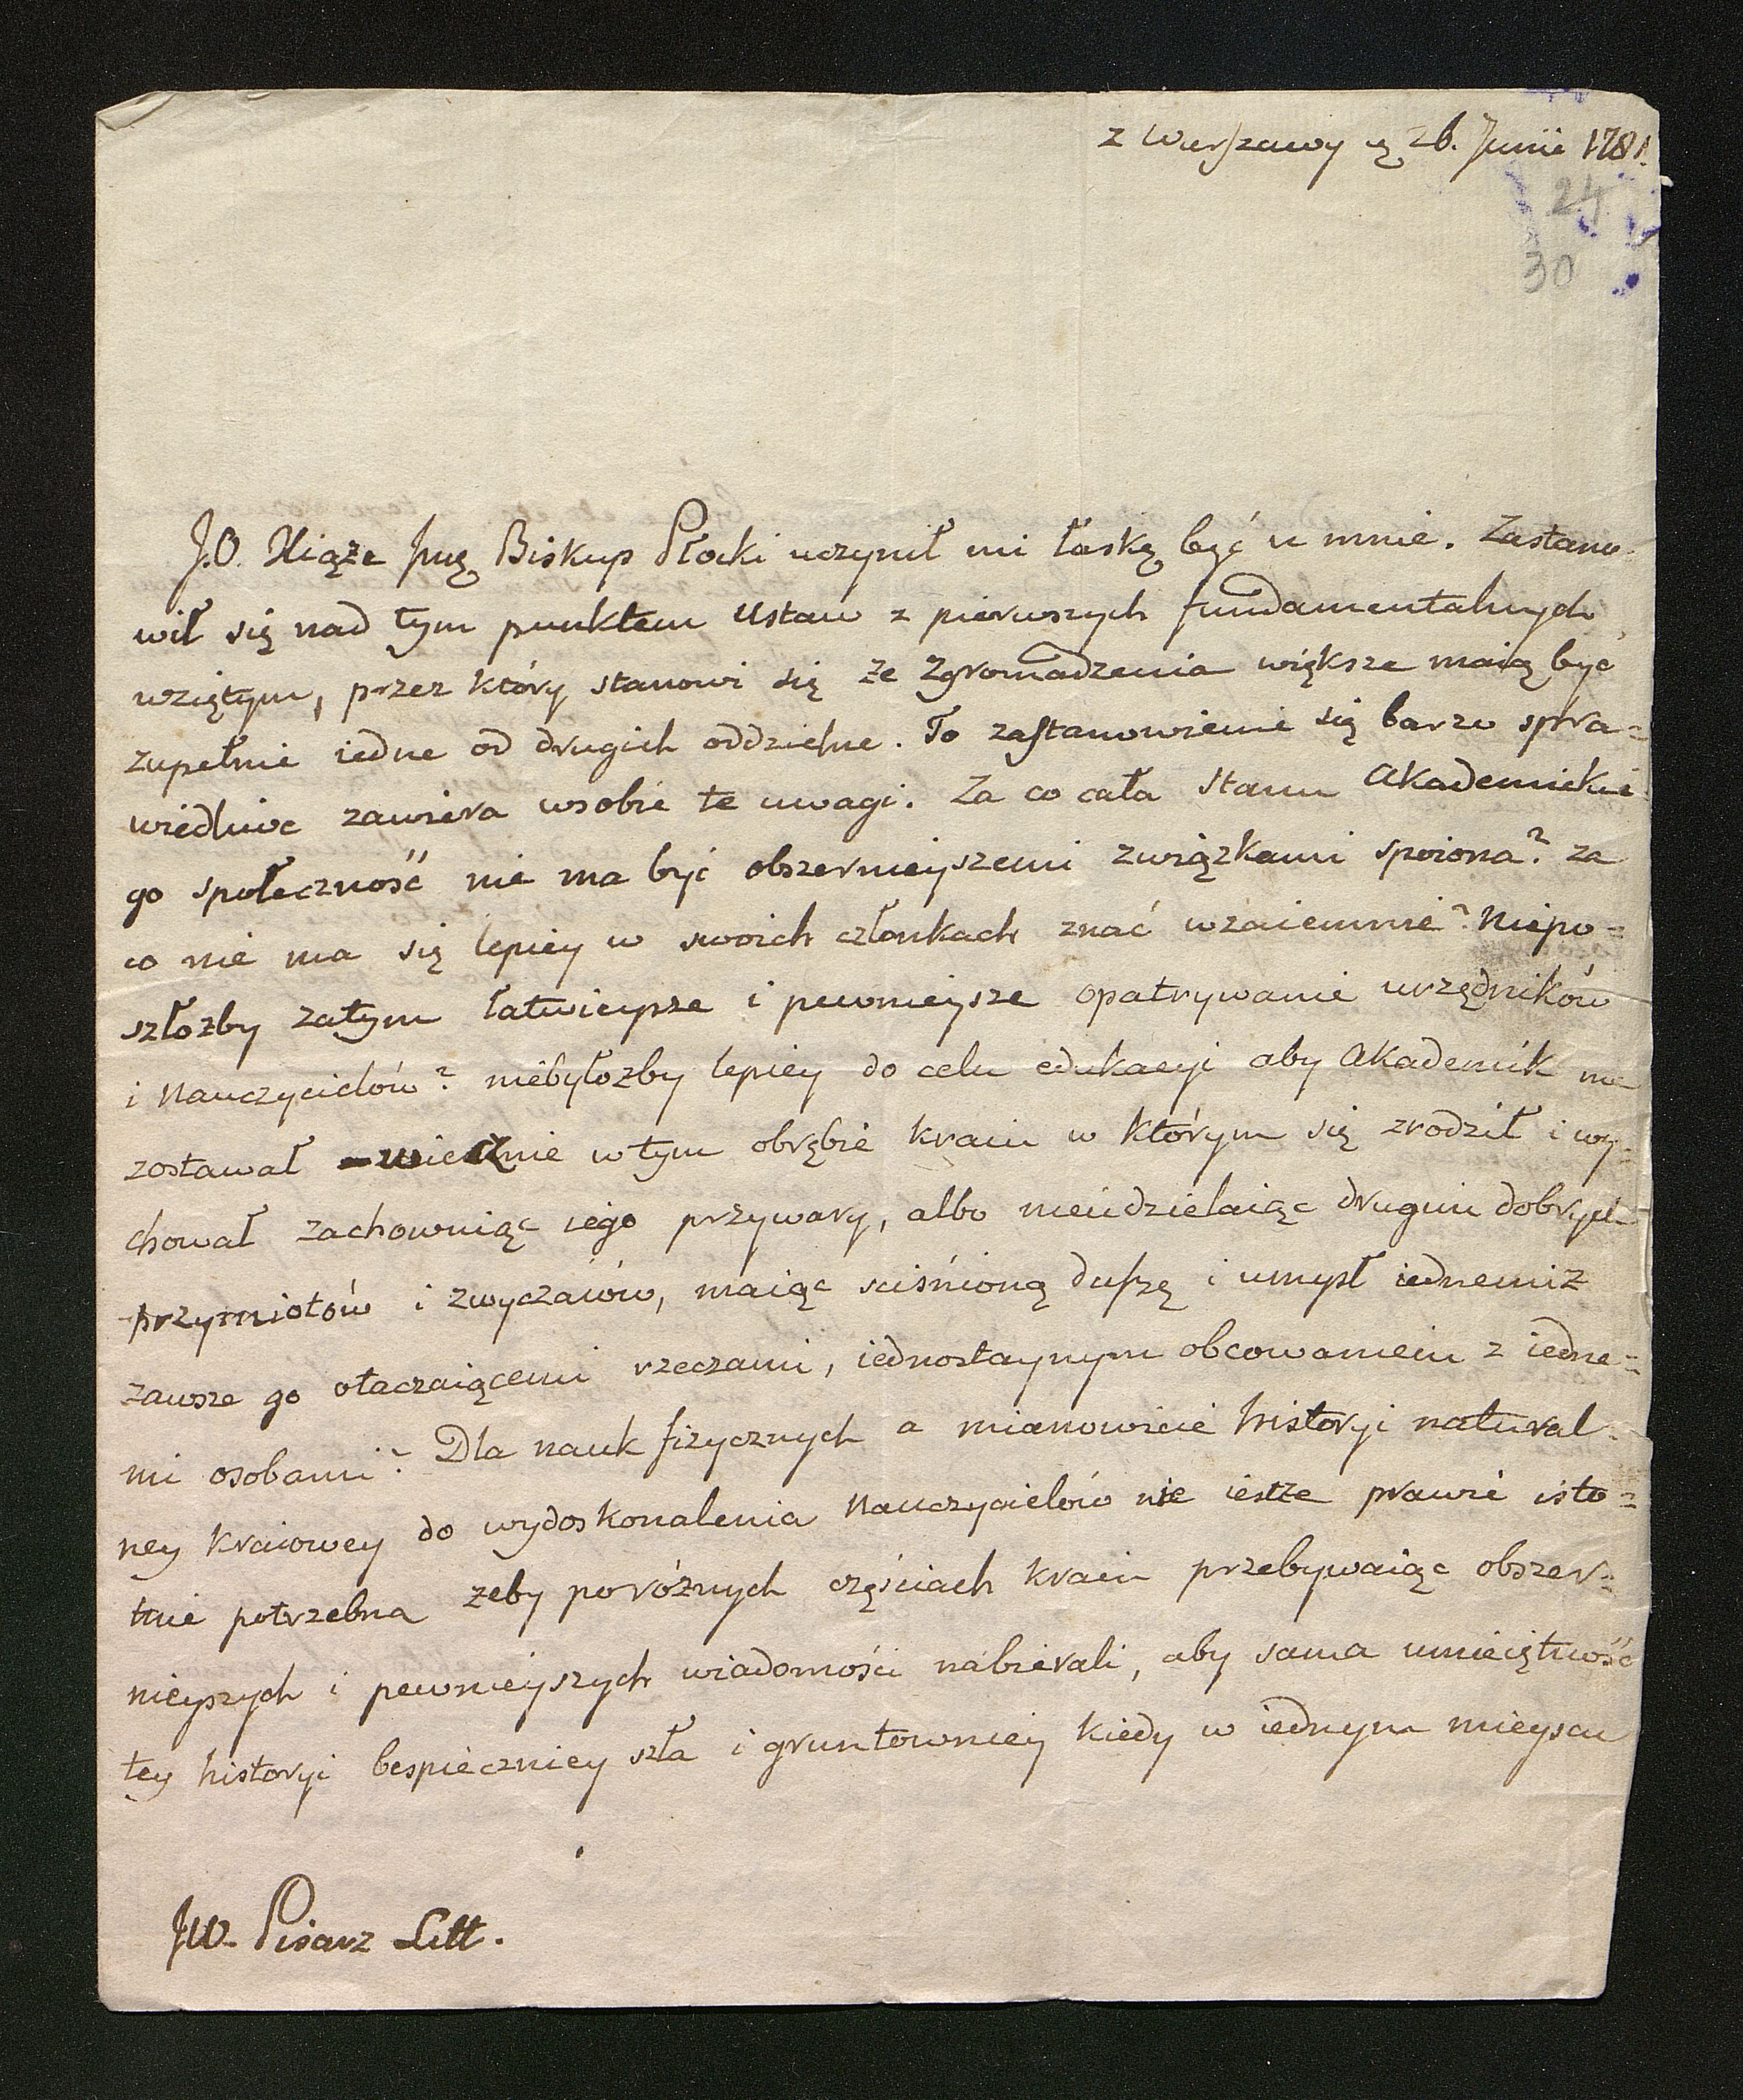 z Warszawy 26. Junii 1781.
24
30
J.O. Xiąże Jmę Biskup Płocki uczynił mi łaskę być u mnie. Zastano-
wił się nad tym punktem Ustaw z pierwszych fundamentalnych
wziętym, przez który stanowi się że Zgromadzenia większe maią być
zupełnie iedne od drugich oddzielne. To zastanowienie się barzo spra=
wiedliwe zawiera wsobie te uwagi. Za co cała stanu Akademickie
go społeczność nie ma być obszernieyszemi związkami spoiona? za
co nie ma się lepiey w swoich członkach znać wzaiemnie? Niepo=
szłożby zatym łatwieysze i pewnieysze opatrywanie urzędników
i Nauczycielów? niebyłożby lepiey do celu edukacyi aby Akademik nie
zostawał wiecznie wtym obrębie kraiu w którym się zrodził i wy=
chował zachowuiąc iego przywary, albo nieudzielaiąc drugim dobrych
przymiotów i zwyczaiów, maiąc sciśnioną duszę i umysł iednemiż
zawsze go otaczaiącemi rzeczami, iednostaynym obcowaniem z iedne=
mi osobami? Dla nauk fizycznych a mianowicie historyi natural-
ney kraiowey do wydoskonalenia Nauczycielów nie iestże prawie isto=
tnie potrzebna żeby po różnych częściach kraiu przebywaiąc obszer=
nieyszych i pewnieyszych wiadomości nabierali, aby sama umieiętność
tey historyi bespieczniey szła i gruntowniey kiedy w iednym mieyscu
JW. Pisarz Litt.